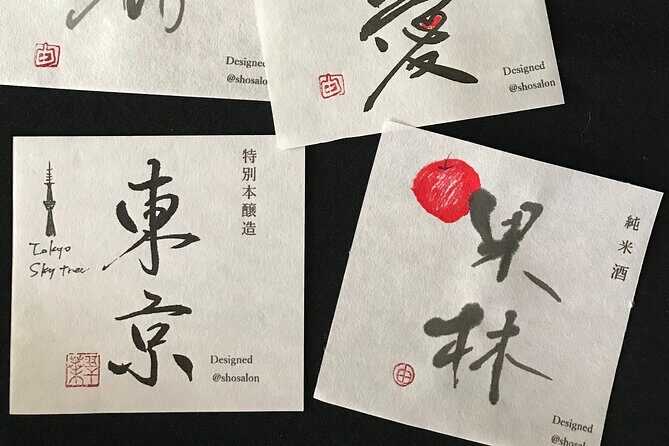 Designed
@shosalon
愛
Designed
@shosalon
特別本醸造
東京
Tokyo
Sky tree
Designed
@shosalon
純米酒
果林
Designed
@shosalon